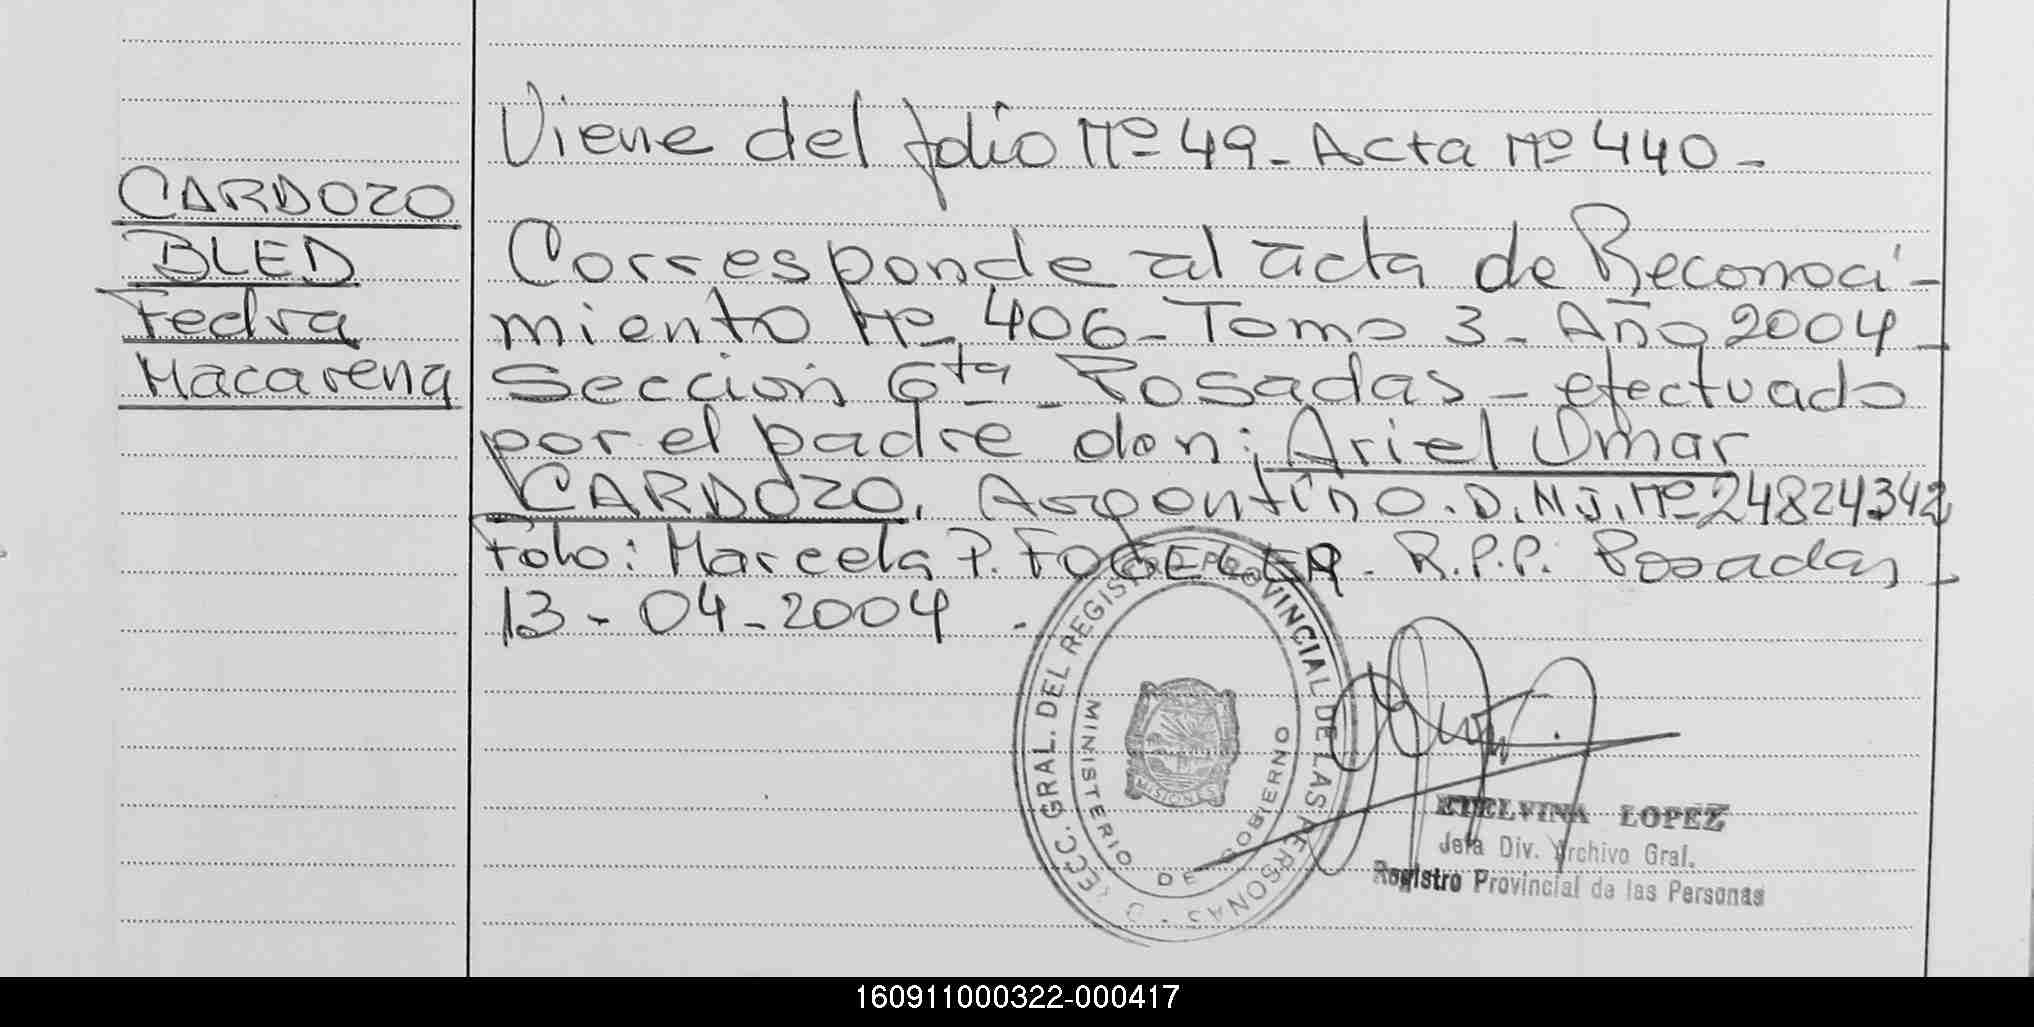 Viene del folio Nº 49 - Acta Nº 440 -
CARDOZO
BLED
Fedra
Macarena
Corresponde al acta de Reconoci-
miento Nº 406 - Tomo 3 - Año 2004 -
Sección 6ta - Posadas - efectuado
por el padre don: Ariel Omar
CARDOZO, Argentino. D.N.I. Nº 24824342
Fdo: Marcela P. R.P.P. Posadas -
13 - 04 - 2004 -
DIRECC. GRAL. DEL REGISTRO PROVINCIAL DE LAS PERSONAS
MINISTERIO DE GOBIERNO
MISIONES
ETELVINA LOPEZ
Jefa Div. Archivo Gral.
Registro Provincial de las Personas
160911000322-000417